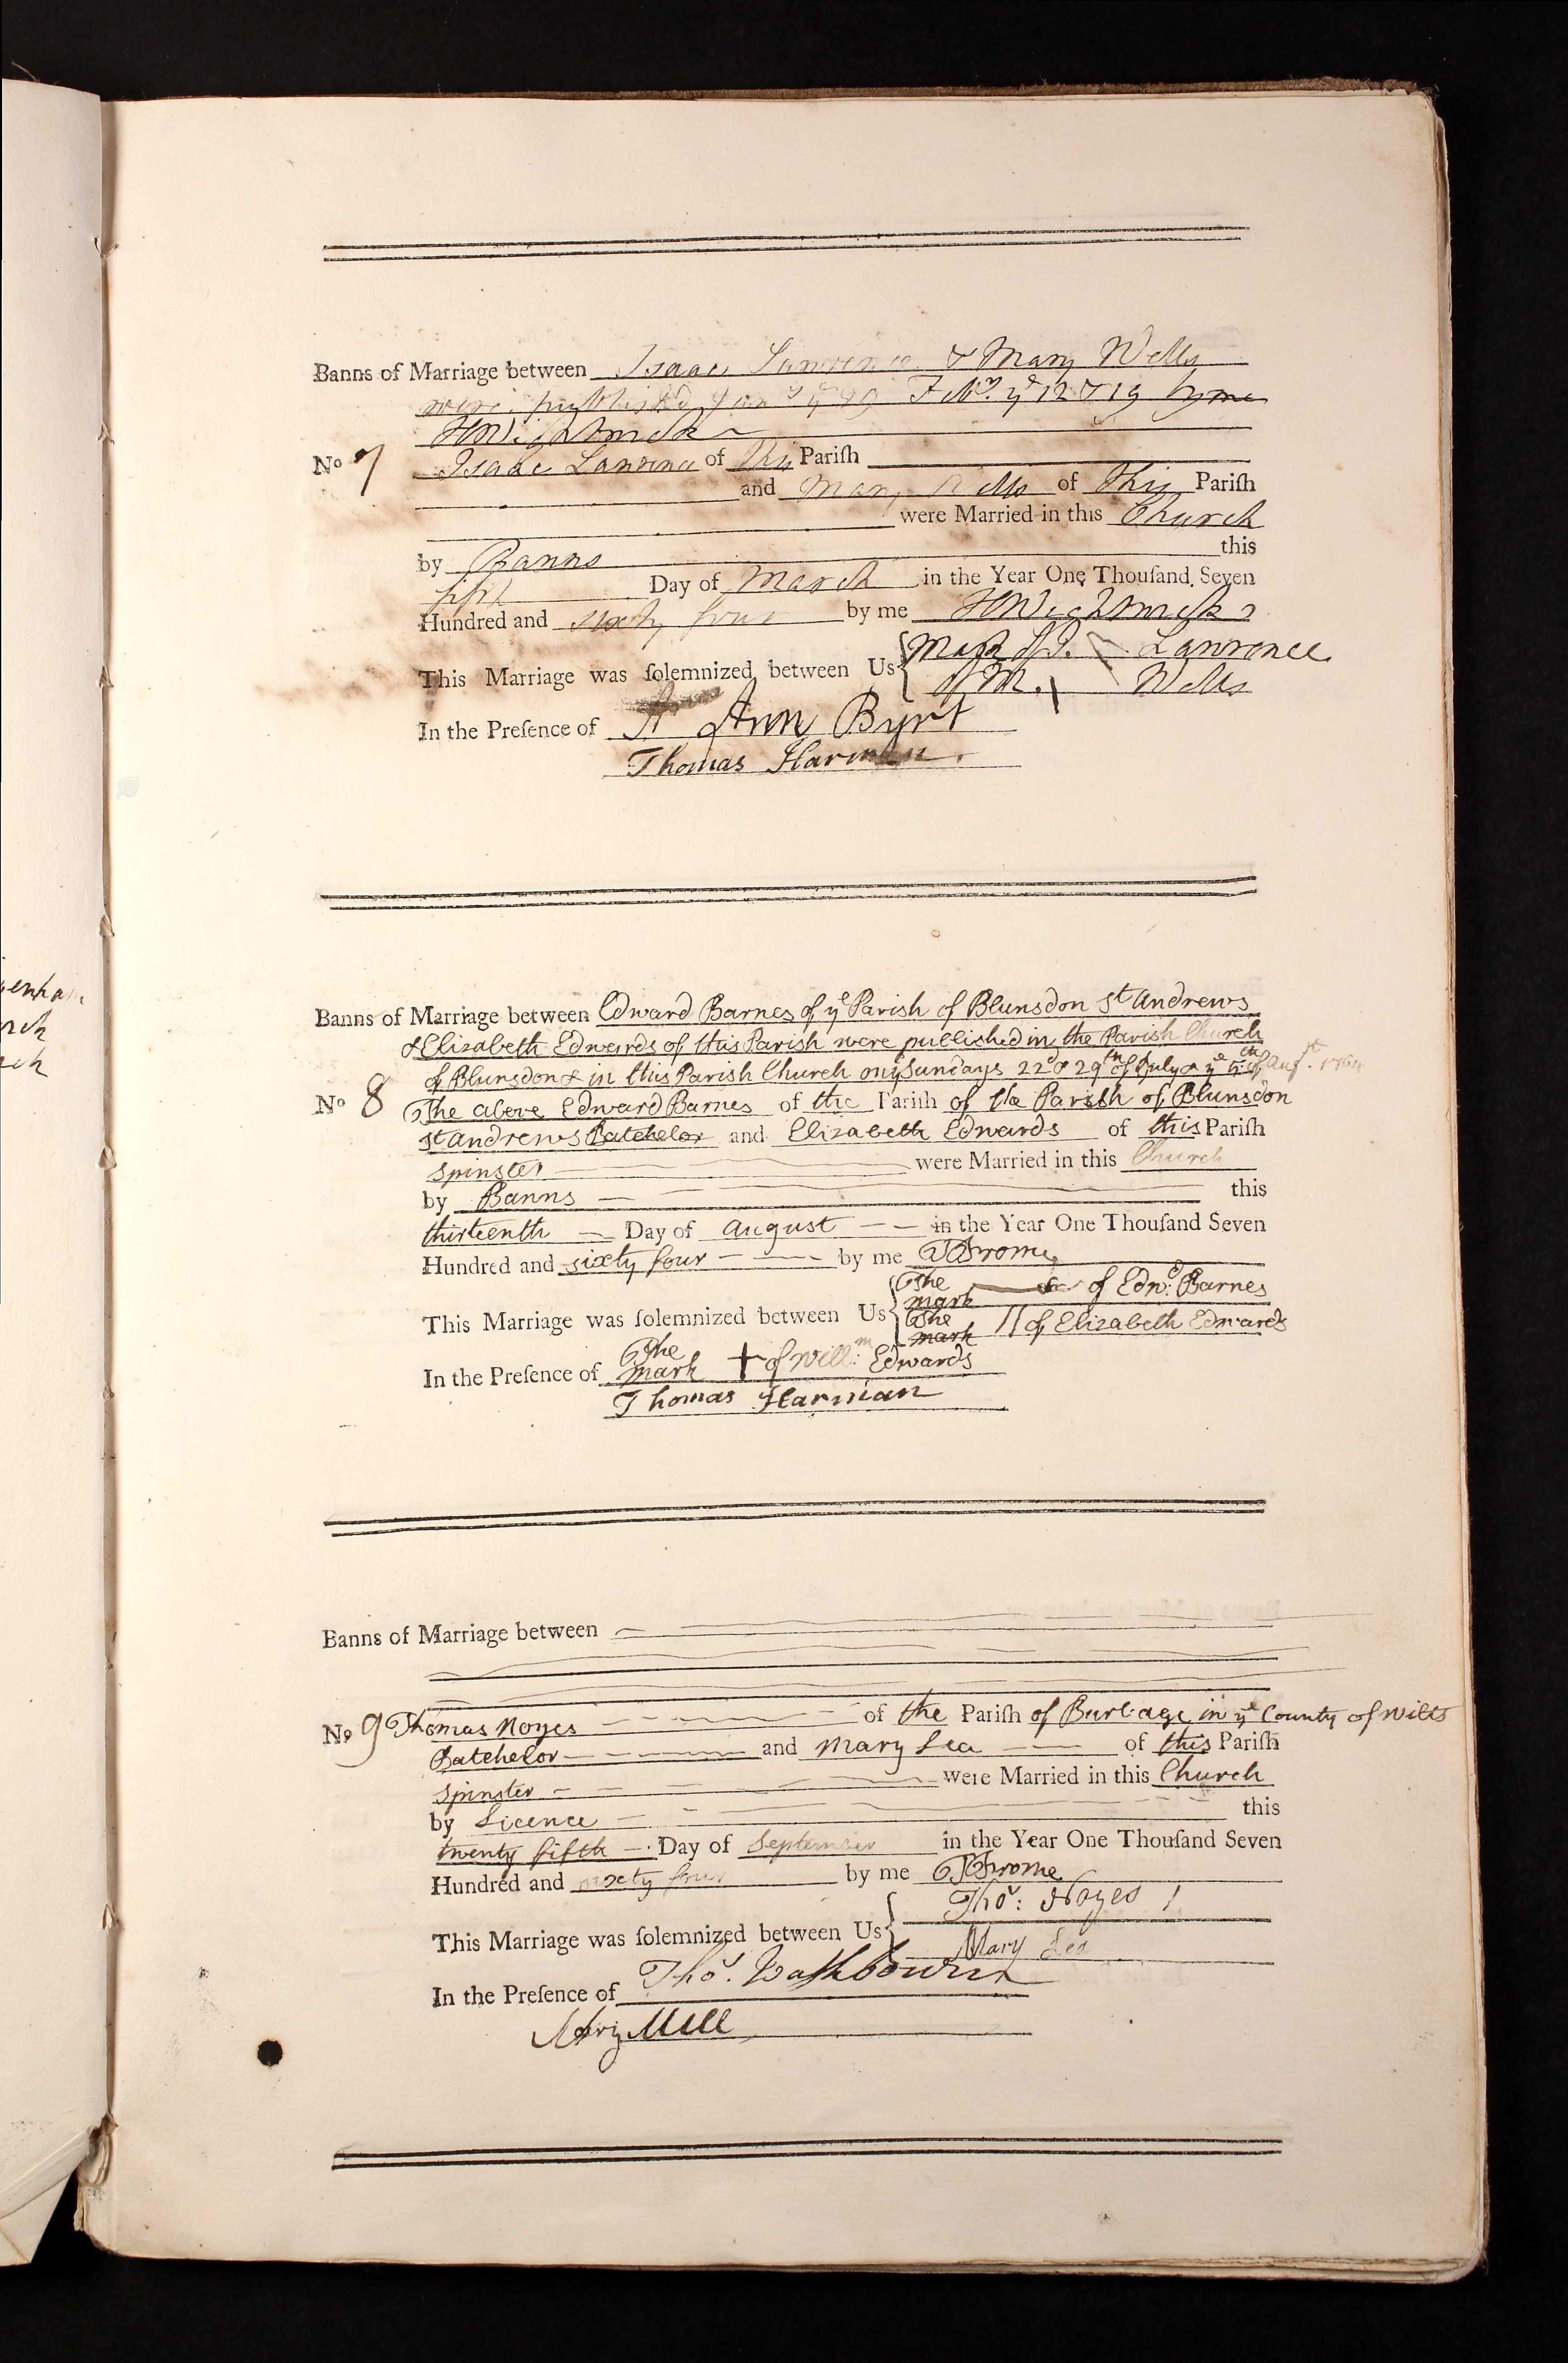 Banns of Marriage between Isaac Lawrence & Mary Wells
were published Jan.y ye 29 Feb.ry ye 12 & 19 by me
H Wightwick
No 7 Isaac Lawrence of this Pariſh
and Mary Wells of this Pariſh
were Married in this Church
by Banns this
fifth Day of March in the Year One Thouſand Seven
Hundred and sixty four by me H Wightwick
This Marriage was ſolemnized between Us Mark of I. Lawrence
of M. \ Wells
In the Preſence of A Ann Byrt
Thomas Harman.
Banns of Marriage between Edward Barnes of ye Parish of Blunsdon St Andrews
& Elizabeth Edwards of this Parish were published in the Parish Church
of Blunsdon & in this Parish Church on ye Sundays 22d & 29th of July & ye 5th of Augst. 1764
No 8 The above Edward Barnes of the Pariſh of the Parish of Blunsdon
St Andrews Batchelor and Elizabeth Edwards of this Pariſh
Spinster were Married in this Church
by Banns this
thirteenth Day of August in the Year One Thouſand Seven
Hundred and sixty four by me T Brome
This Marriage was ſolemnized between Us The mark of Edwd: Barnes
The mark || of Elizabeth Edwards
In the Preſence of The mark + of Willm: Edwards
Thomas Harman
Banns of Marriage between
No 9 Thomas Noyes of the Pariſh of Burbage in ye County of Wilts
Batchelor and Mary Lea of this Pariſh
Spinster were Married in this Church
by Licence this
twenty fifth Day of September in the Year One Thouſand Seven
Hundred and sixty four by me T Brome
This Marriage was ſolemnized between Us Thos: Noyes
Mary Lea
In the Preſence of Thos. Washbourn
Mary Mill